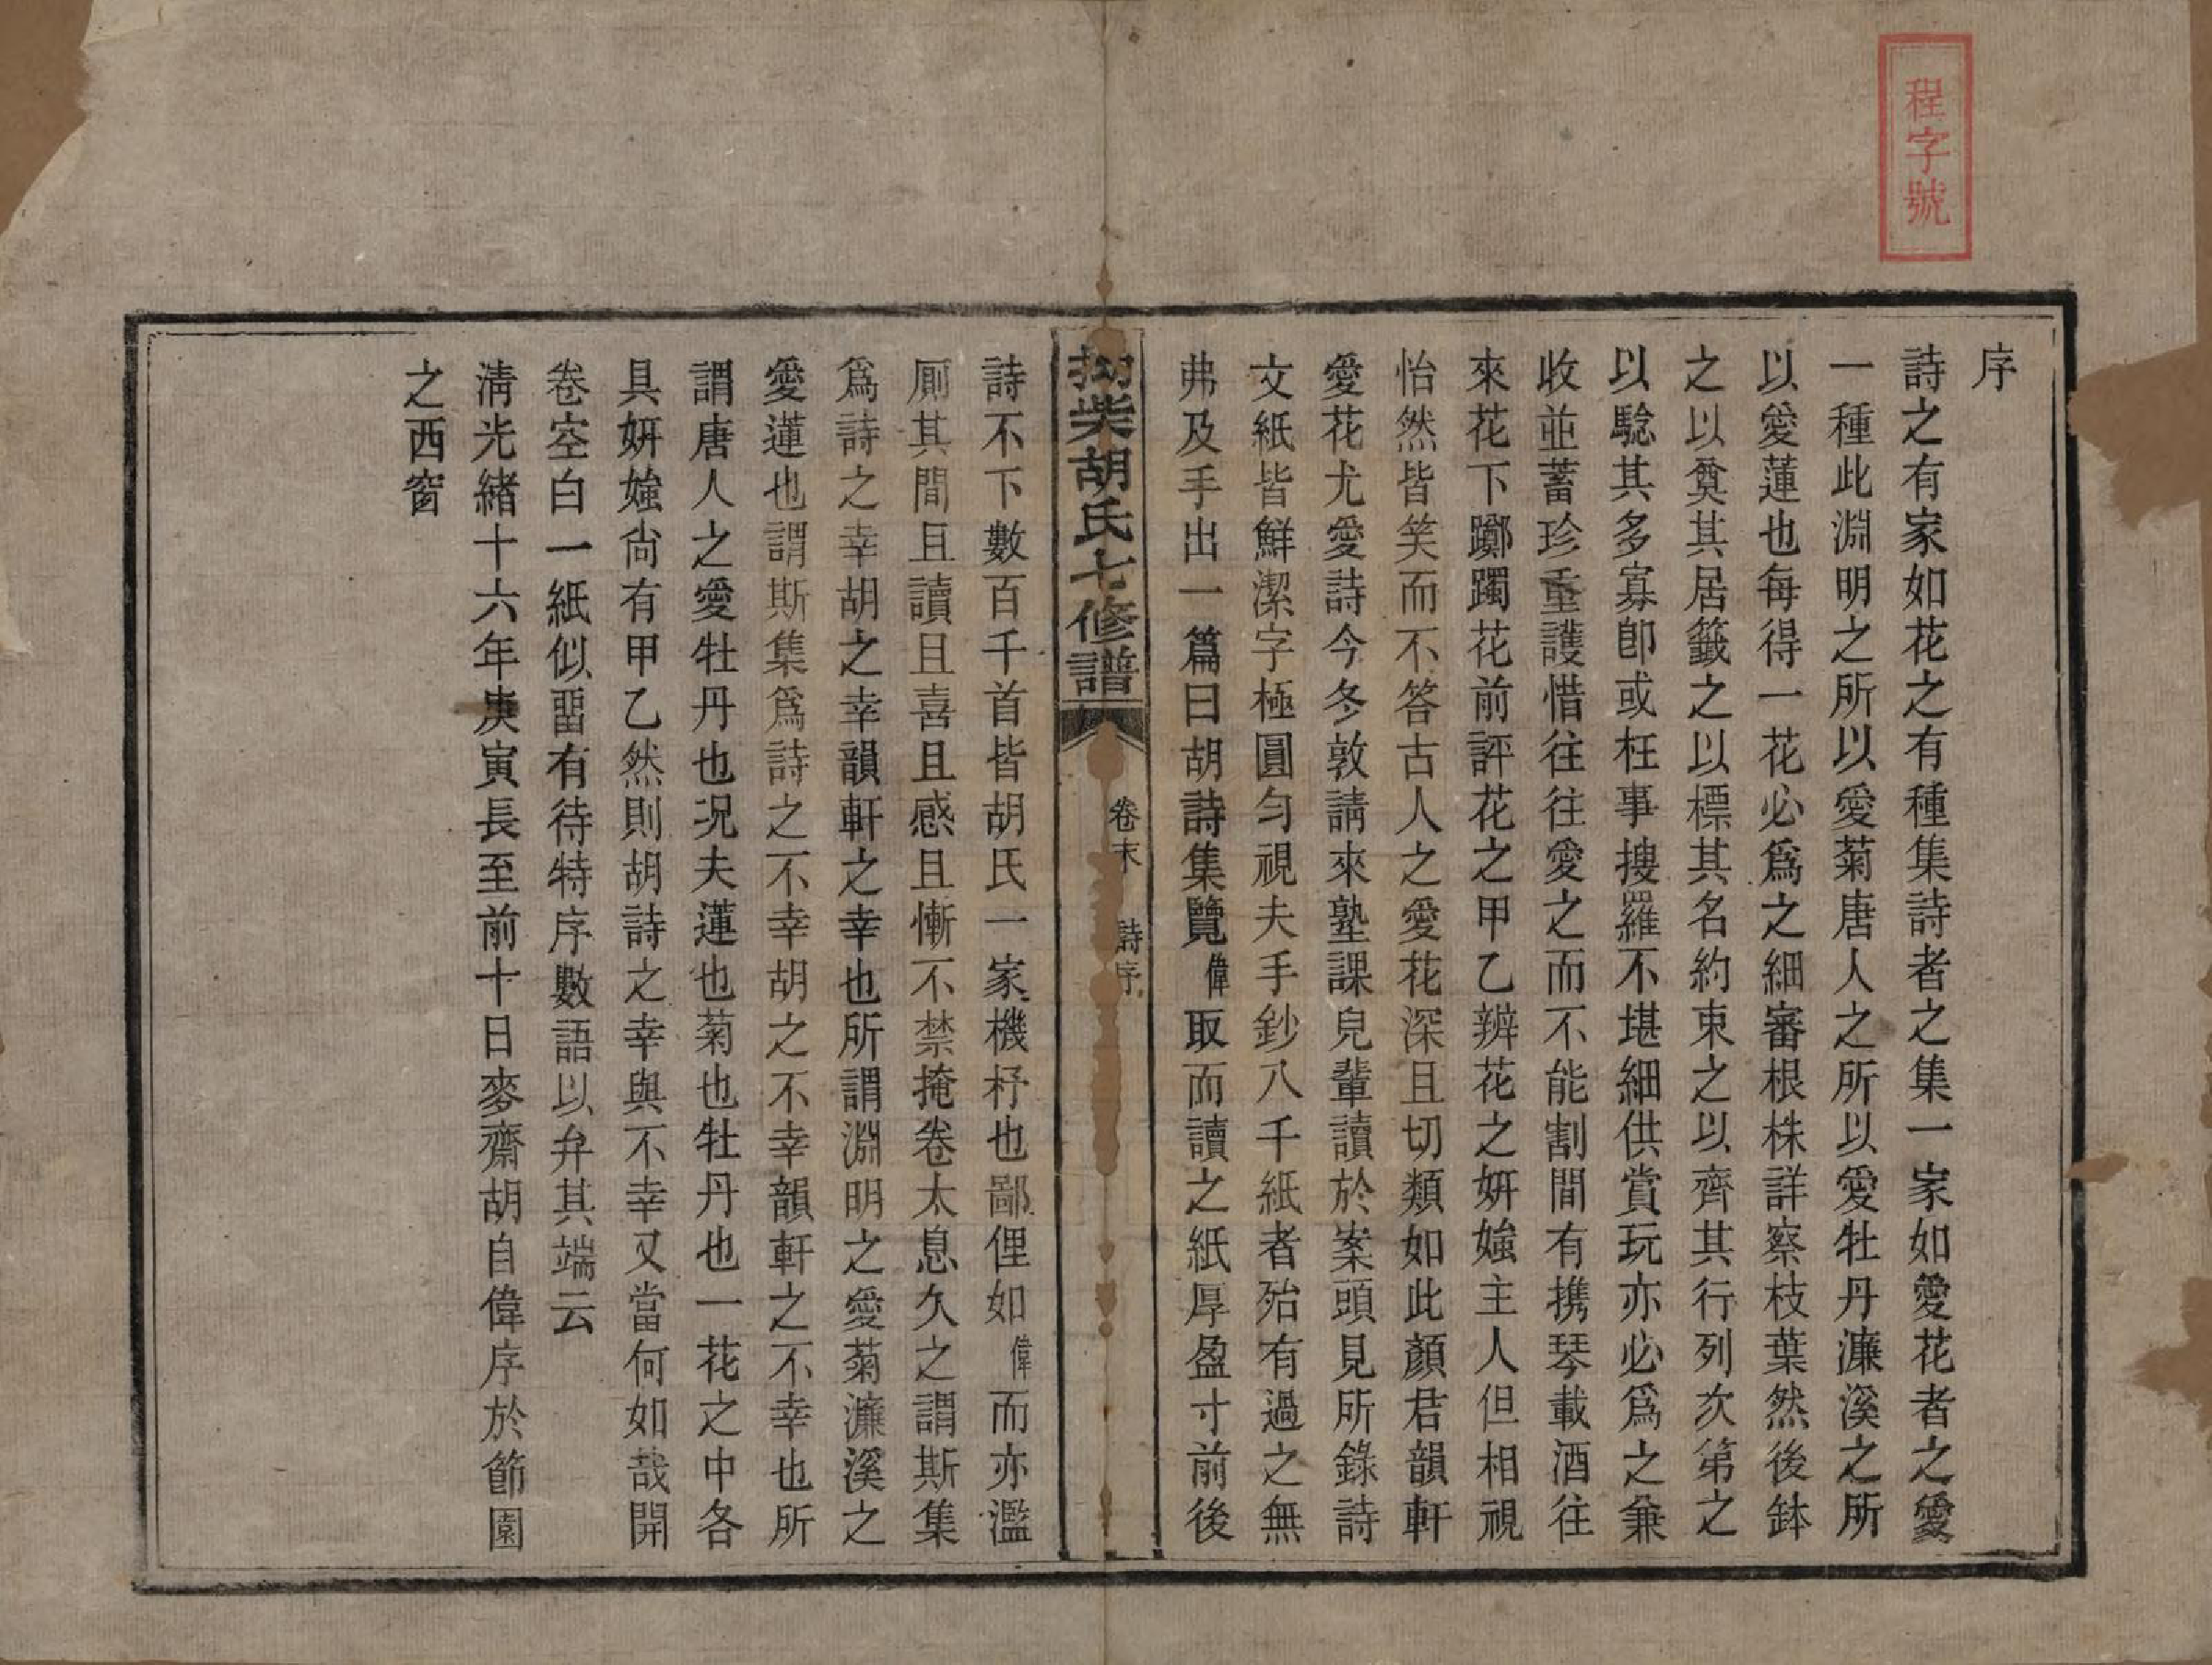 程字號
序
詩之有家如花之有種集詩者之集一家如愛花者之愛
一種此淵明之所以愛菊唐人之所以愛牡丹濂溪之所
以愛蓮也每得一花必爲之細審根株詳察枝葉然後鉢
之以奠其居籤之以標其名約束之以齊其行列次第之
以騐其多寡卽或枉事搜羅不堪細供賞玩亦必爲之兼
收並蓄珍重護惜往往愛之而不能割間有携琴載酒往
來花下躑躅花前評花之甲乙辨花之妍媸主人但相視
怡然皆笑而不答古人之愛花深且切類如此顏君韻軒
愛花尤愛詩今冬敦請來塾課兒輩讀於案頭見所錄詩
文紙皆鮮潔字極圓匀視夫手鈔八千紙者殆有過之無
弗及手出一篇曰胡詩集覽偉取而讀之紙厚盈寸前後
柴胡氏七修譜
卷末 詩序
詩不下數百千首皆胡氏一家機杼也鄙俚如偉而亦濫
厠其間且讀且喜且感且慚不禁掩卷太息久之謂斯集
爲詩之幸胡之幸韻軒之幸也所謂淵明之愛菊濂溪之
愛蓮也謂斯集爲詩之不幸胡之不幸韻軒之不幸也所
謂唐人之愛牡丹也况夫蓮也菊也牡丹也一花之中各
具妍媸尙有甲乙然則胡詩之幸與不幸又當何如哉開
卷空白一紙似畱有待特序數語以弁其端云
淸光緒十六年庚寅長至前十日麥齋胡自偉序於節園
之西窗